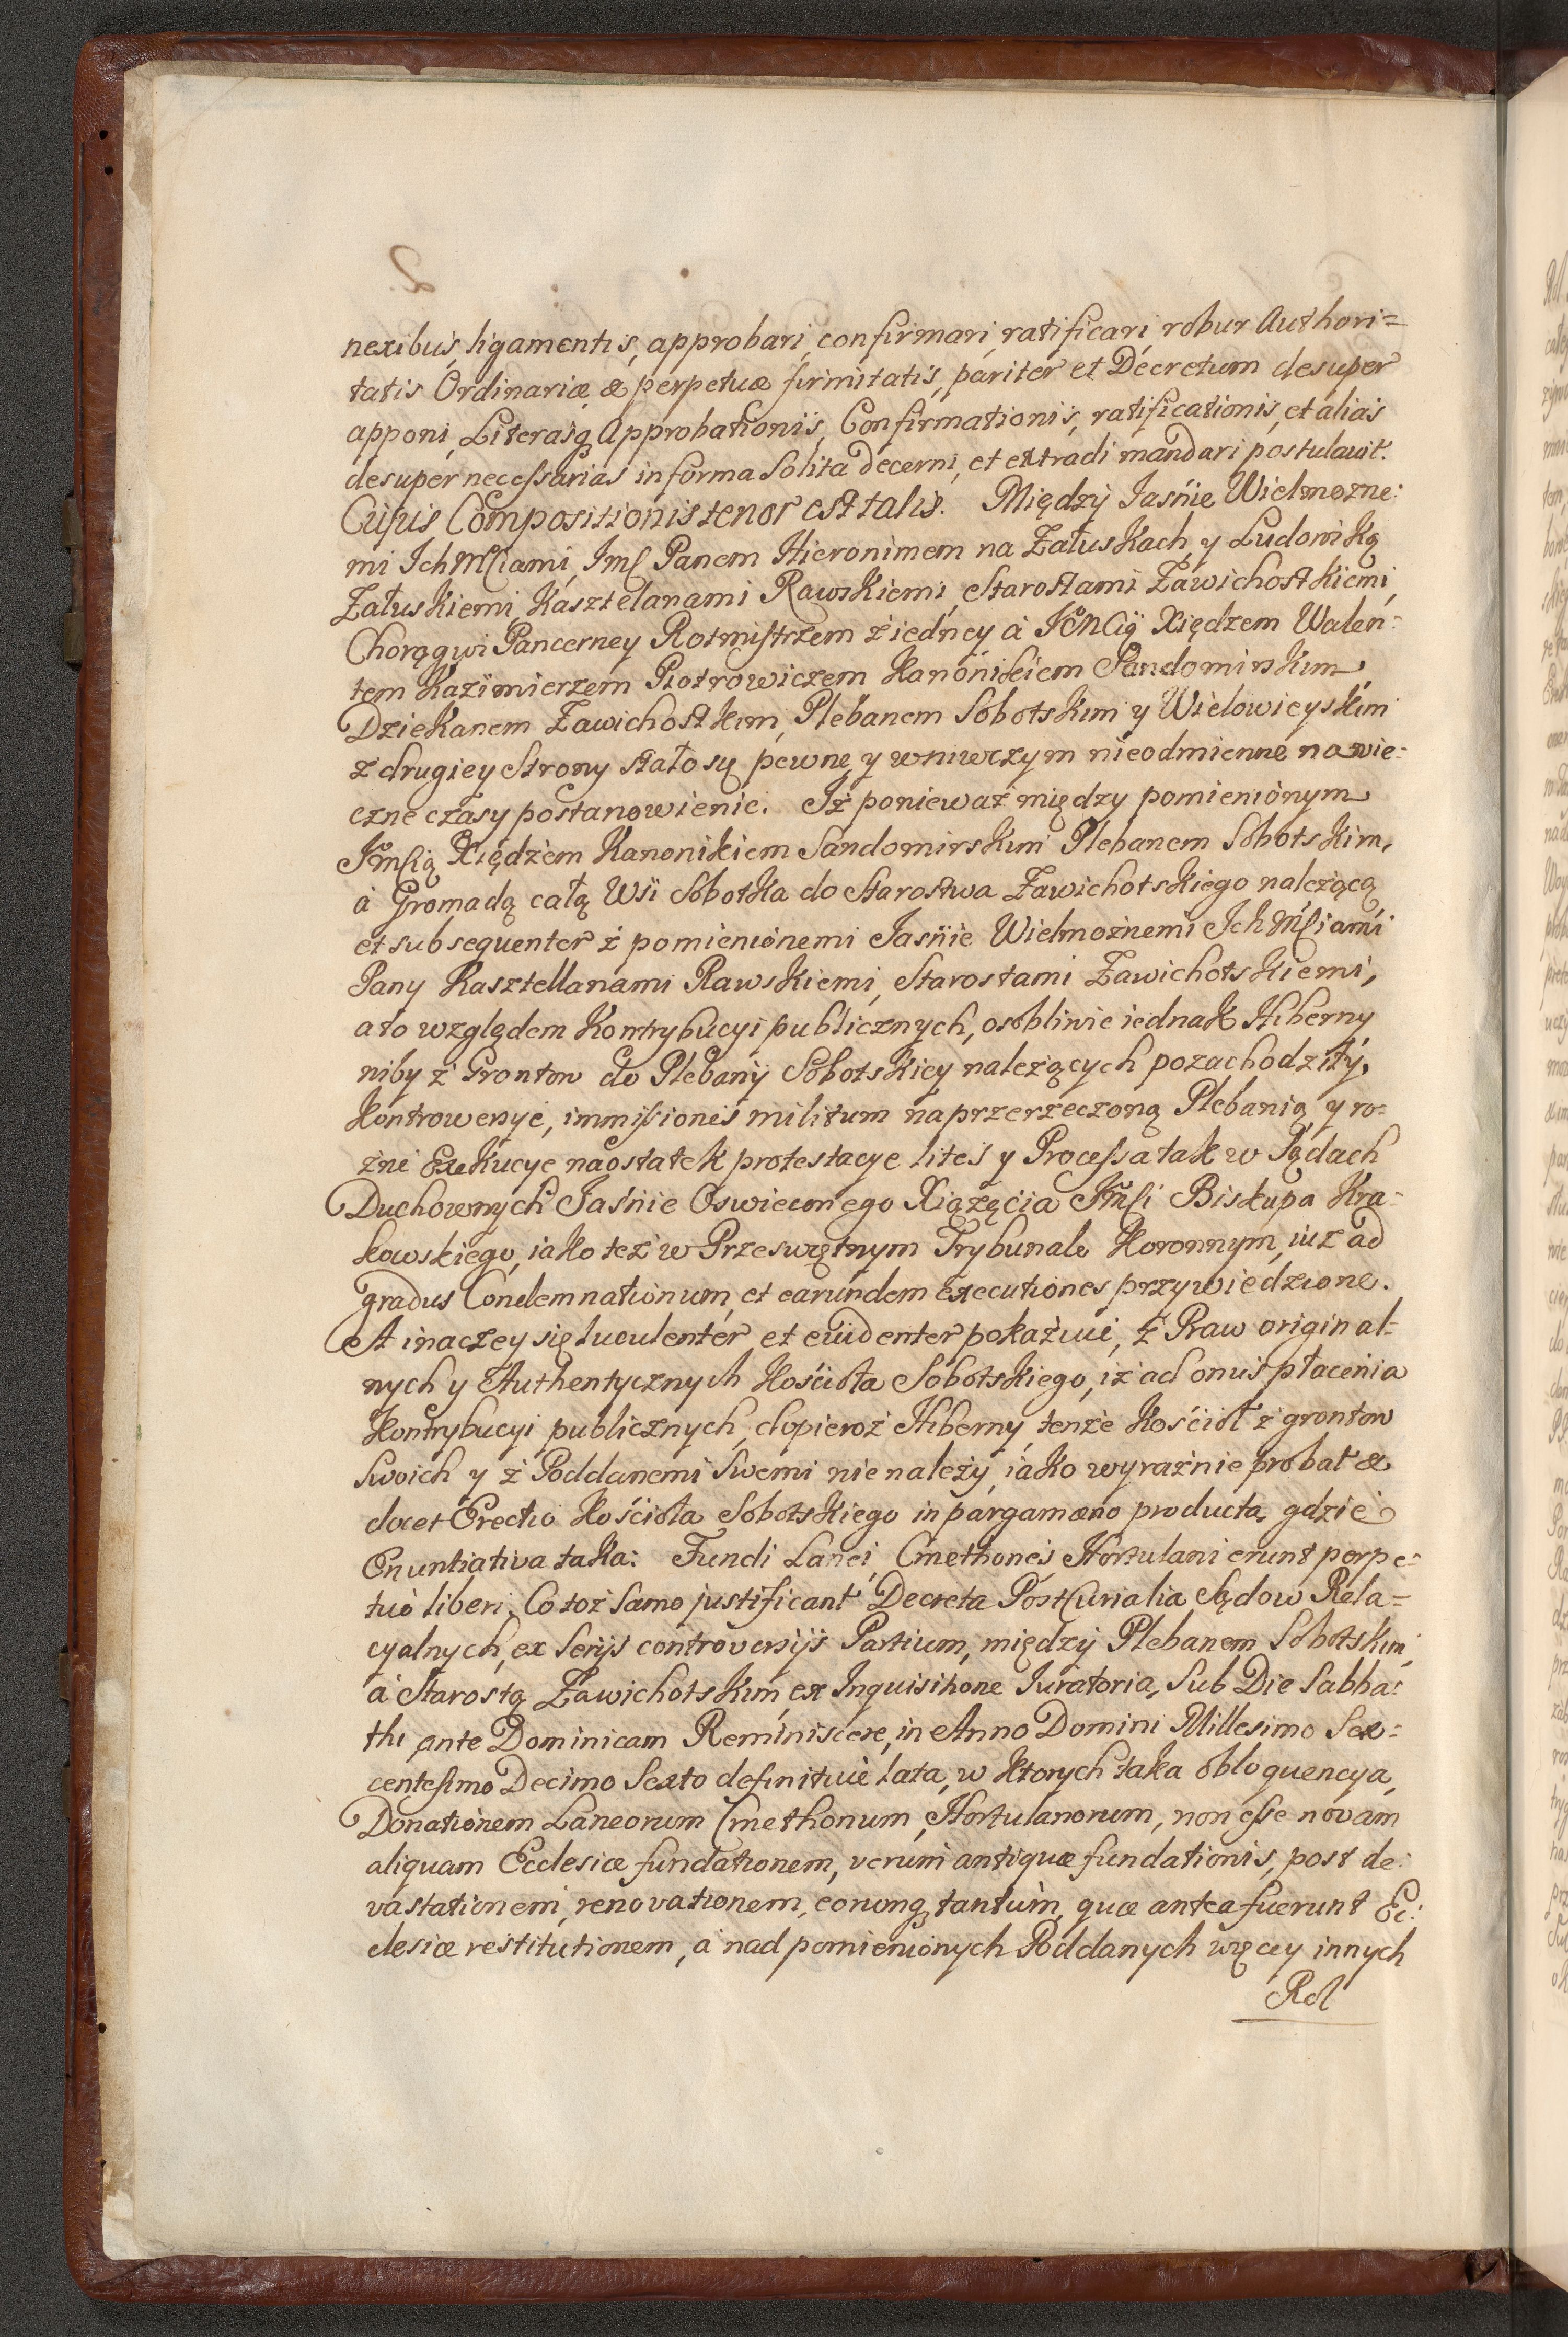 nexibus, ligamentis, approbari, confirmari, ratificari, robur Authori=
tatis Ordinariæ & perpetuæ firmitatis, pariter et Decretum desuper
apponi, Literasq3 Approbationis, Confirmationis, ratificationis, et alias
desuper necessarias in forma Solita decerni, et extradi mandari postulavit.
Cujus Compositionis tenor est talis. Między Jaśnie Wielmozne=
mi Ich Mściami, Imś Panem Hieronimem na Załuskach, y Ludowiką
Załuskiemi, Kasztelanami Rawskiemi, Starostami Zawichostkiemi,
Chorągwi Pancerney Rotmistrzem z iedney à IĆMścią Xiędzem Walen=
tem Kazimierzem Piotrowiczem Kanonikiem Sandomirskim,
Dziekanem Zawichostkim, Plebanem Sobotskim y Wielowieyskim
z drugiey Strony stało się pewne y wniwczym nieodmienne na wie=
czne czasy postanowienie. Iż ponieważ między pomienionym
Imścią Xiędzem Kanonikiem Sandomirskim Plebanem Sobotskim,
à Gromadą całą Wsi Sobotka do Starostwa Zawichotskiego należącą
et subsequenter z pomienionemi Jaśnie Wielmożnemi Ich Mściami
Pany Kasztellanami Rawskiemi, Starostami Zawichotskiemi,
a to względem Kontrybucyi publicznych, osobliwie iednak Hiberny
niby z Grontow do Plebany Sobotskiey należących pozachodziły,
Kontrowersye, immissiones militum na przerzeczoną Plebanią y ro=
żne Exekucye naostatek protestacye lites y Processa tak w Sądach
Duchownych Jaśnie Oswieconego Xiążęcia Imści Biskupa Kra=
kowskiego, iako też w Przeswiętnym Trybunale Koronnym, iuż ad
gradus Condemnationum, et earundem Executiones przywiedzione.
A inaczey się luculenter et evidenter pokazuie, z Praw original=
nych y Authentycznych Kościoła Sobotskiego, iż ad onus płacenia
Kontrybucyi publicznych, dopieroż Hiberny, tenże Kościoł z grontow
Swoich y z Poddanemi Swemi nienależy, iako wyraźnie probat &
docet Erectio Kościoła Sobotskiego in pargamæno producta, gdzie
Enuntiativa taka: Fundi Lanei, Cmethones, Hortulani erunt perpe=
tuò liberi. Co toż samo justificant Decreta PostCurialia Sądow Rela=
cyalnych, ex Serijs controversijs Partium, między Plebanem Sobotskim,
à Starostą Zawichotskim, ex Inquisitione Iuratoria, Sub Die Sabba=
thi ante Dominicam Reminiscere, in Anno Domini Millesimo Sex=
centesimo Decimo Sexto definitive lata, w ktorych taka obloquencya,
Donationem Laneorum Cmethonum, Hortulanorum, non esse novam
aliquam Ecclesiæ fundationem, verum antiquæ fundationis, post de=
vastationem, renovationem, eorumq3 tantum, quæ antea fuerunt Ec=
clesiæ restitutionem, à nad pomienionych Poddanych więcey innych
Rol